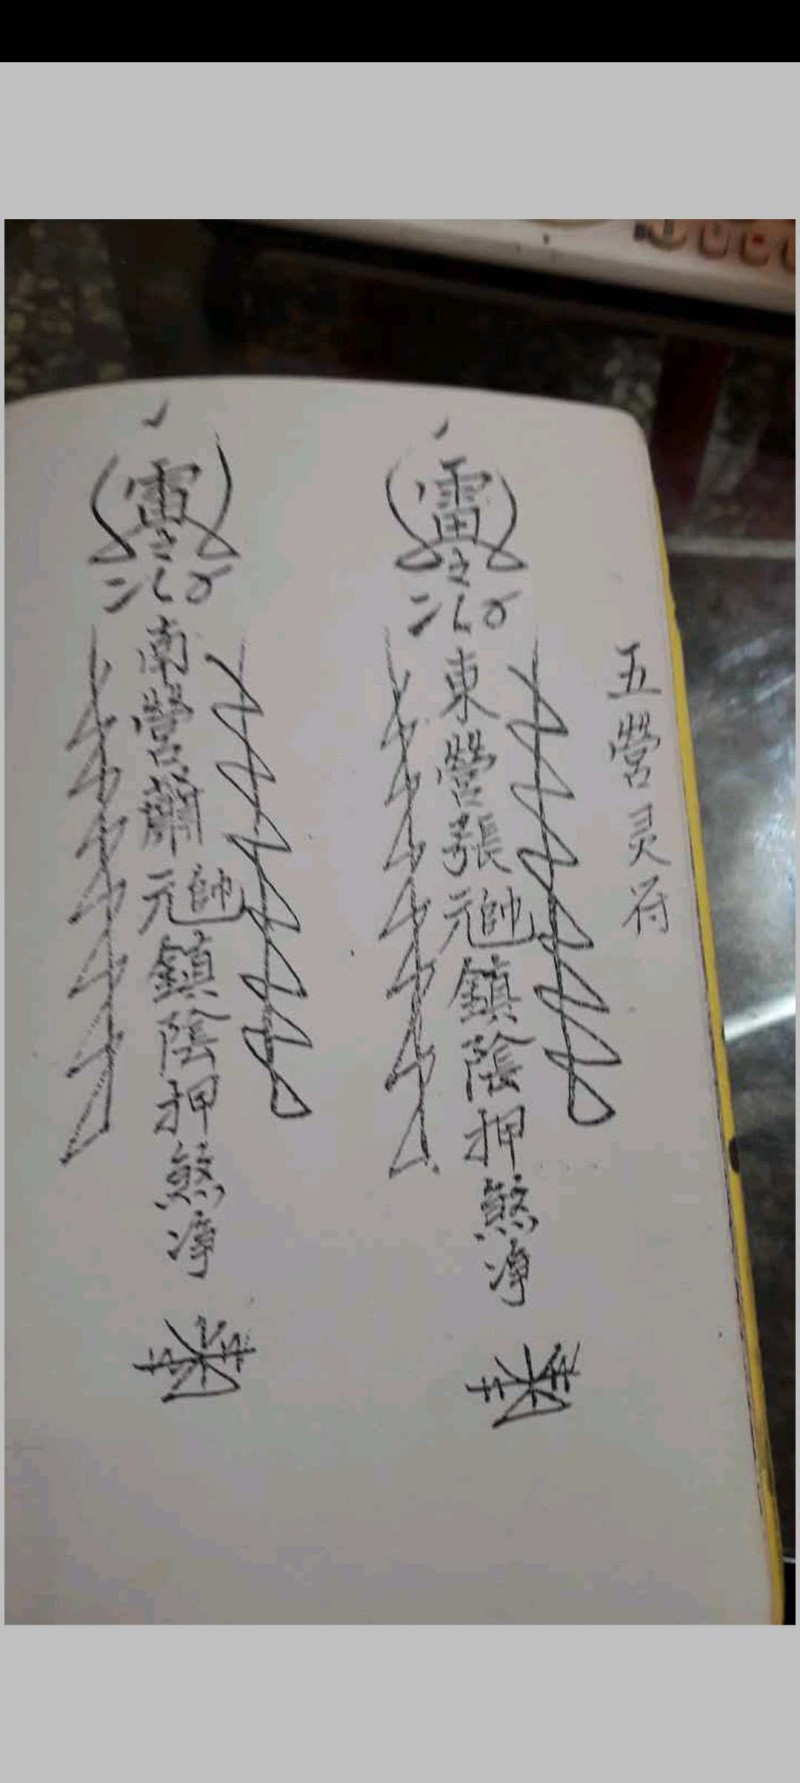 五營灵符
雷
東營張元帥鎮陰押煞净
雷
南營蕭元帥鎮陰押煞净